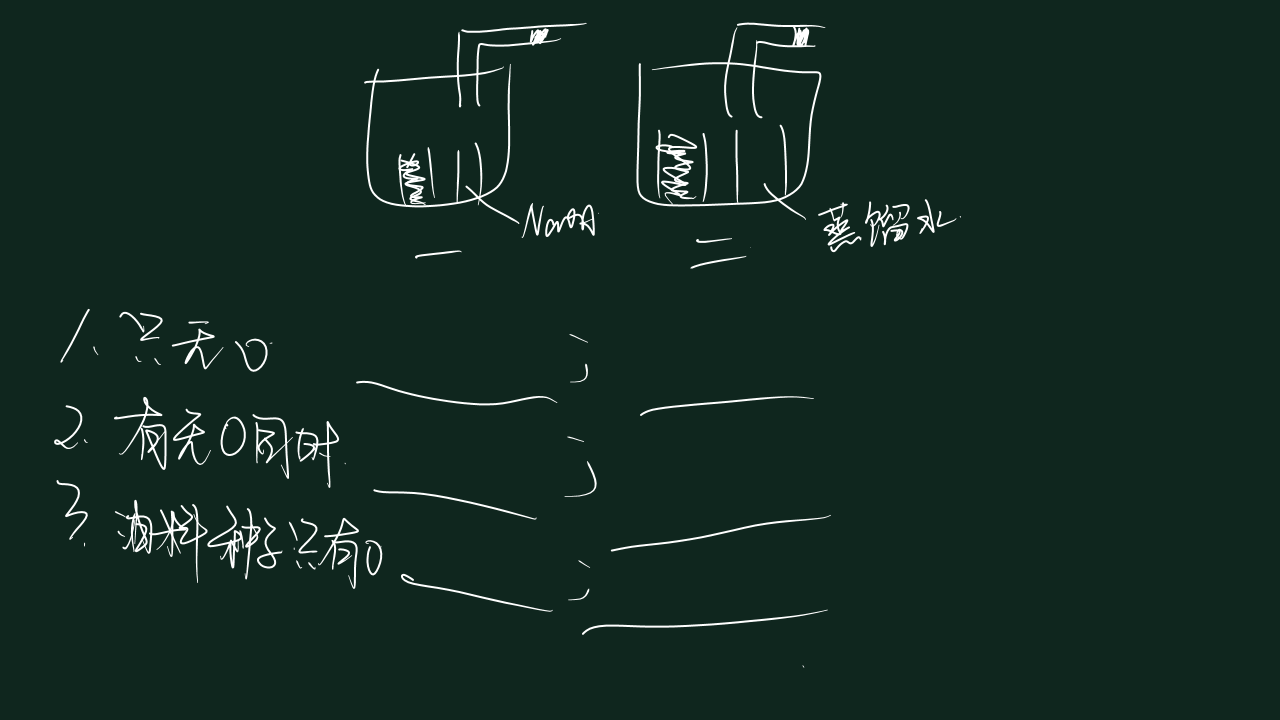 NaOH
蒸馏水
一
二
1. 只无O
2. 有无O同时
3. 油料种子只有O